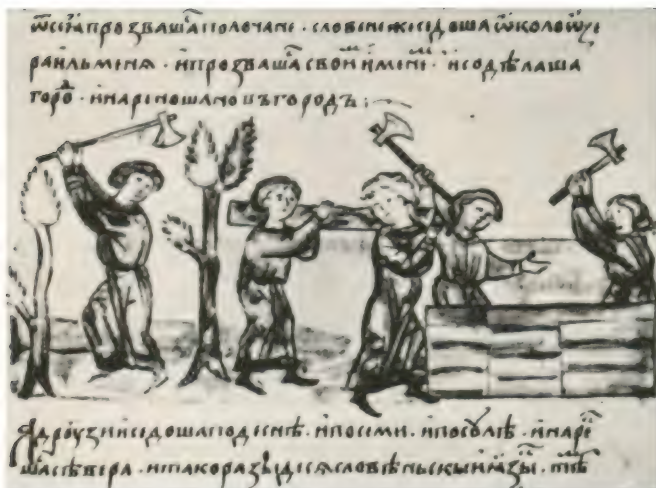 ѿ сеѧ прозвашаⷭ полочане · словене же седоша ѡколо ѡзе
ра ильменѧ · и прозвашаⷭ своиⷨ имениⷨ · и содѣлаша
гороⷣ · и нарекоша новъгородъ :~
А дроузии седоша по десне · и по семи · и по соулѣ · и нарⷷ
ша сѣвера · и тако разыдесѧ словѣньскыи ꙗзыⷦ · тѣⷨ